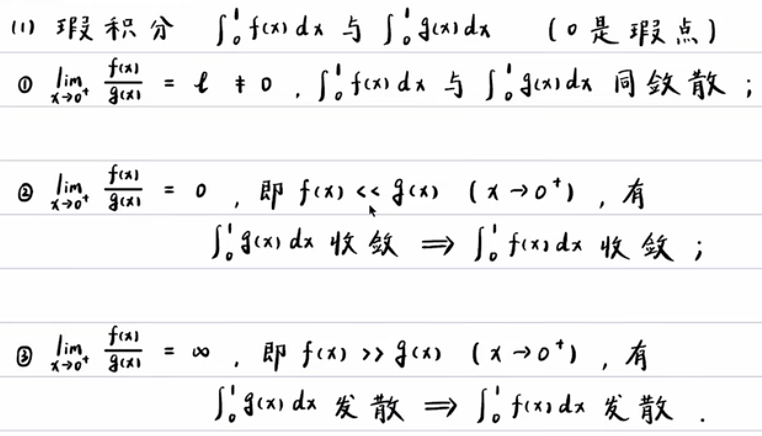 (1) 瑕积分 ∫₀¹ f(x) dx 与 ∫₀¹ g(x) dx (0 是瑕点)
① lim_{x→0⁺} f(x)/g(x) = ℓ ≠ 0 , ∫₀¹ f(x) dx 与 ∫₀¹ g(x) dx 同敛散 ;
② lim_{x→0⁺} f(x)/g(x) = 0 , 即 f(x) << g(x) (x→0⁺) , 有
∫₀¹ g(x) dx 收敛 ⟹ ∫₀¹ f(x) dx 收敛 ;
③ lim_{x→0⁺} f(x)/g(x) = ∞ , 即 f(x) >> g(x) (x→0⁺) , 有
∫₀¹ g(x) dx 发散 ⟹ ∫₀¹ f(x) dx 发散 .